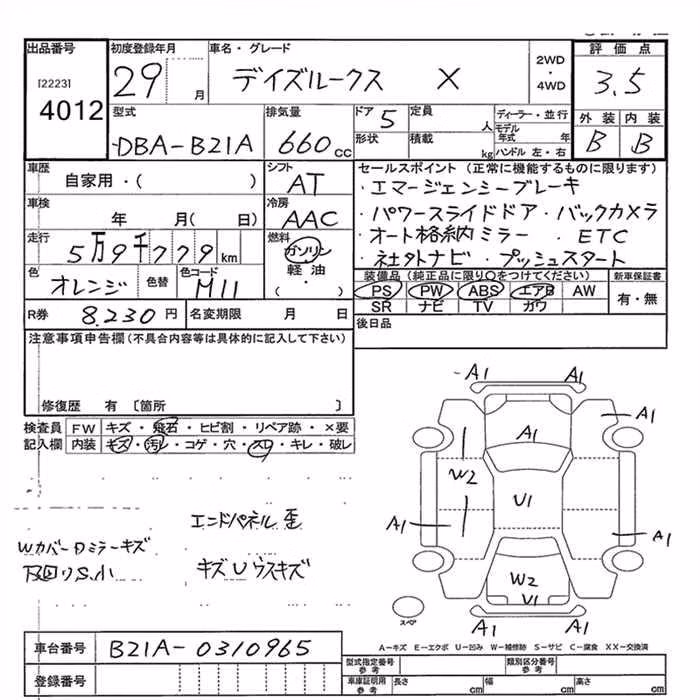 出品番号 初度登録年月 車名・グレード 2WD・4WD 評価点
[2223] 4012 29 月 デイズルークス X 3.5
型式 排気量 ドア 定員 人 ディーラー・並行 外装 内装
DBA-B21A 660cc 5 モデル年式 年 B B
形状 積載 kg ハンドル 左・右
車歴 シフト セールスポイント (正常に機能するものに限ります)
自家用・( ) AT ・エマージェンシーブレーキ
車検 冷房 ・パワースライドドア・バックカメラ
年 月( 日) AAC ・オート格納ミラー・ETC
走行 燃料 ・社外ナビ・プッシュスタート
5万9千779km ガソリン・軽油・( )
色 色替 色コード 装備品 (純正品に限り○をつけてください) 新車保証書
オレンジ M11 PS PW ABS エアB AW 有・無
SR ナビ TV カワ
R券 8,230円 名変期限 月 日 後日品
注意事項申告欄 (不具合内容等は具体的に記入して下さい)
修復歴 有 〔箇所 〕
検査員 FW キズ・飛石・ヒビ割・リペア跡・×要
記入欄 内装 キズ・汚レ・コゲ・穴・スレ・キレ・破レ
エンドパネル 歪
Wカバー Dミラーキズ
下回りS小 キズU ウスキズ
A1 A1
A1 A1
W2 U1
A1 A1
W2
U1
スペア A1 A1
A-キズ E-エクボ U-凹み W-補修跡 S-サビ C-腐食 XX-交換済
車台番号 B21A-0310965 型式指定番号 参考 類別区分番号 参考
登録番号 車庫証明用 参考 長さ cm 幅 cm 高さ cm